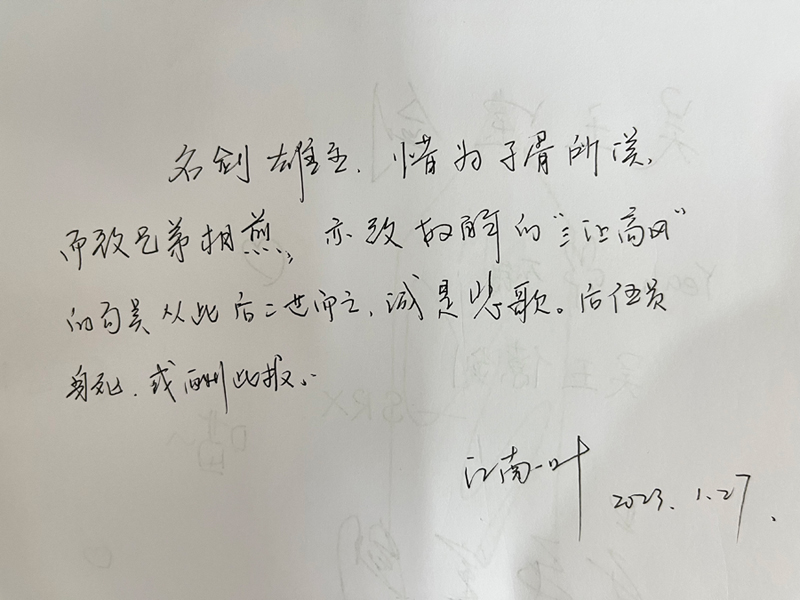 名剑雄主，惜为子胥所误，
而致兄弟相煎，亦致故解的“三让高风”
的句吴从此后二世而亡，诚是悲歌。后伍员
身死，或酬此报。
江南一叶
2023.1.27.